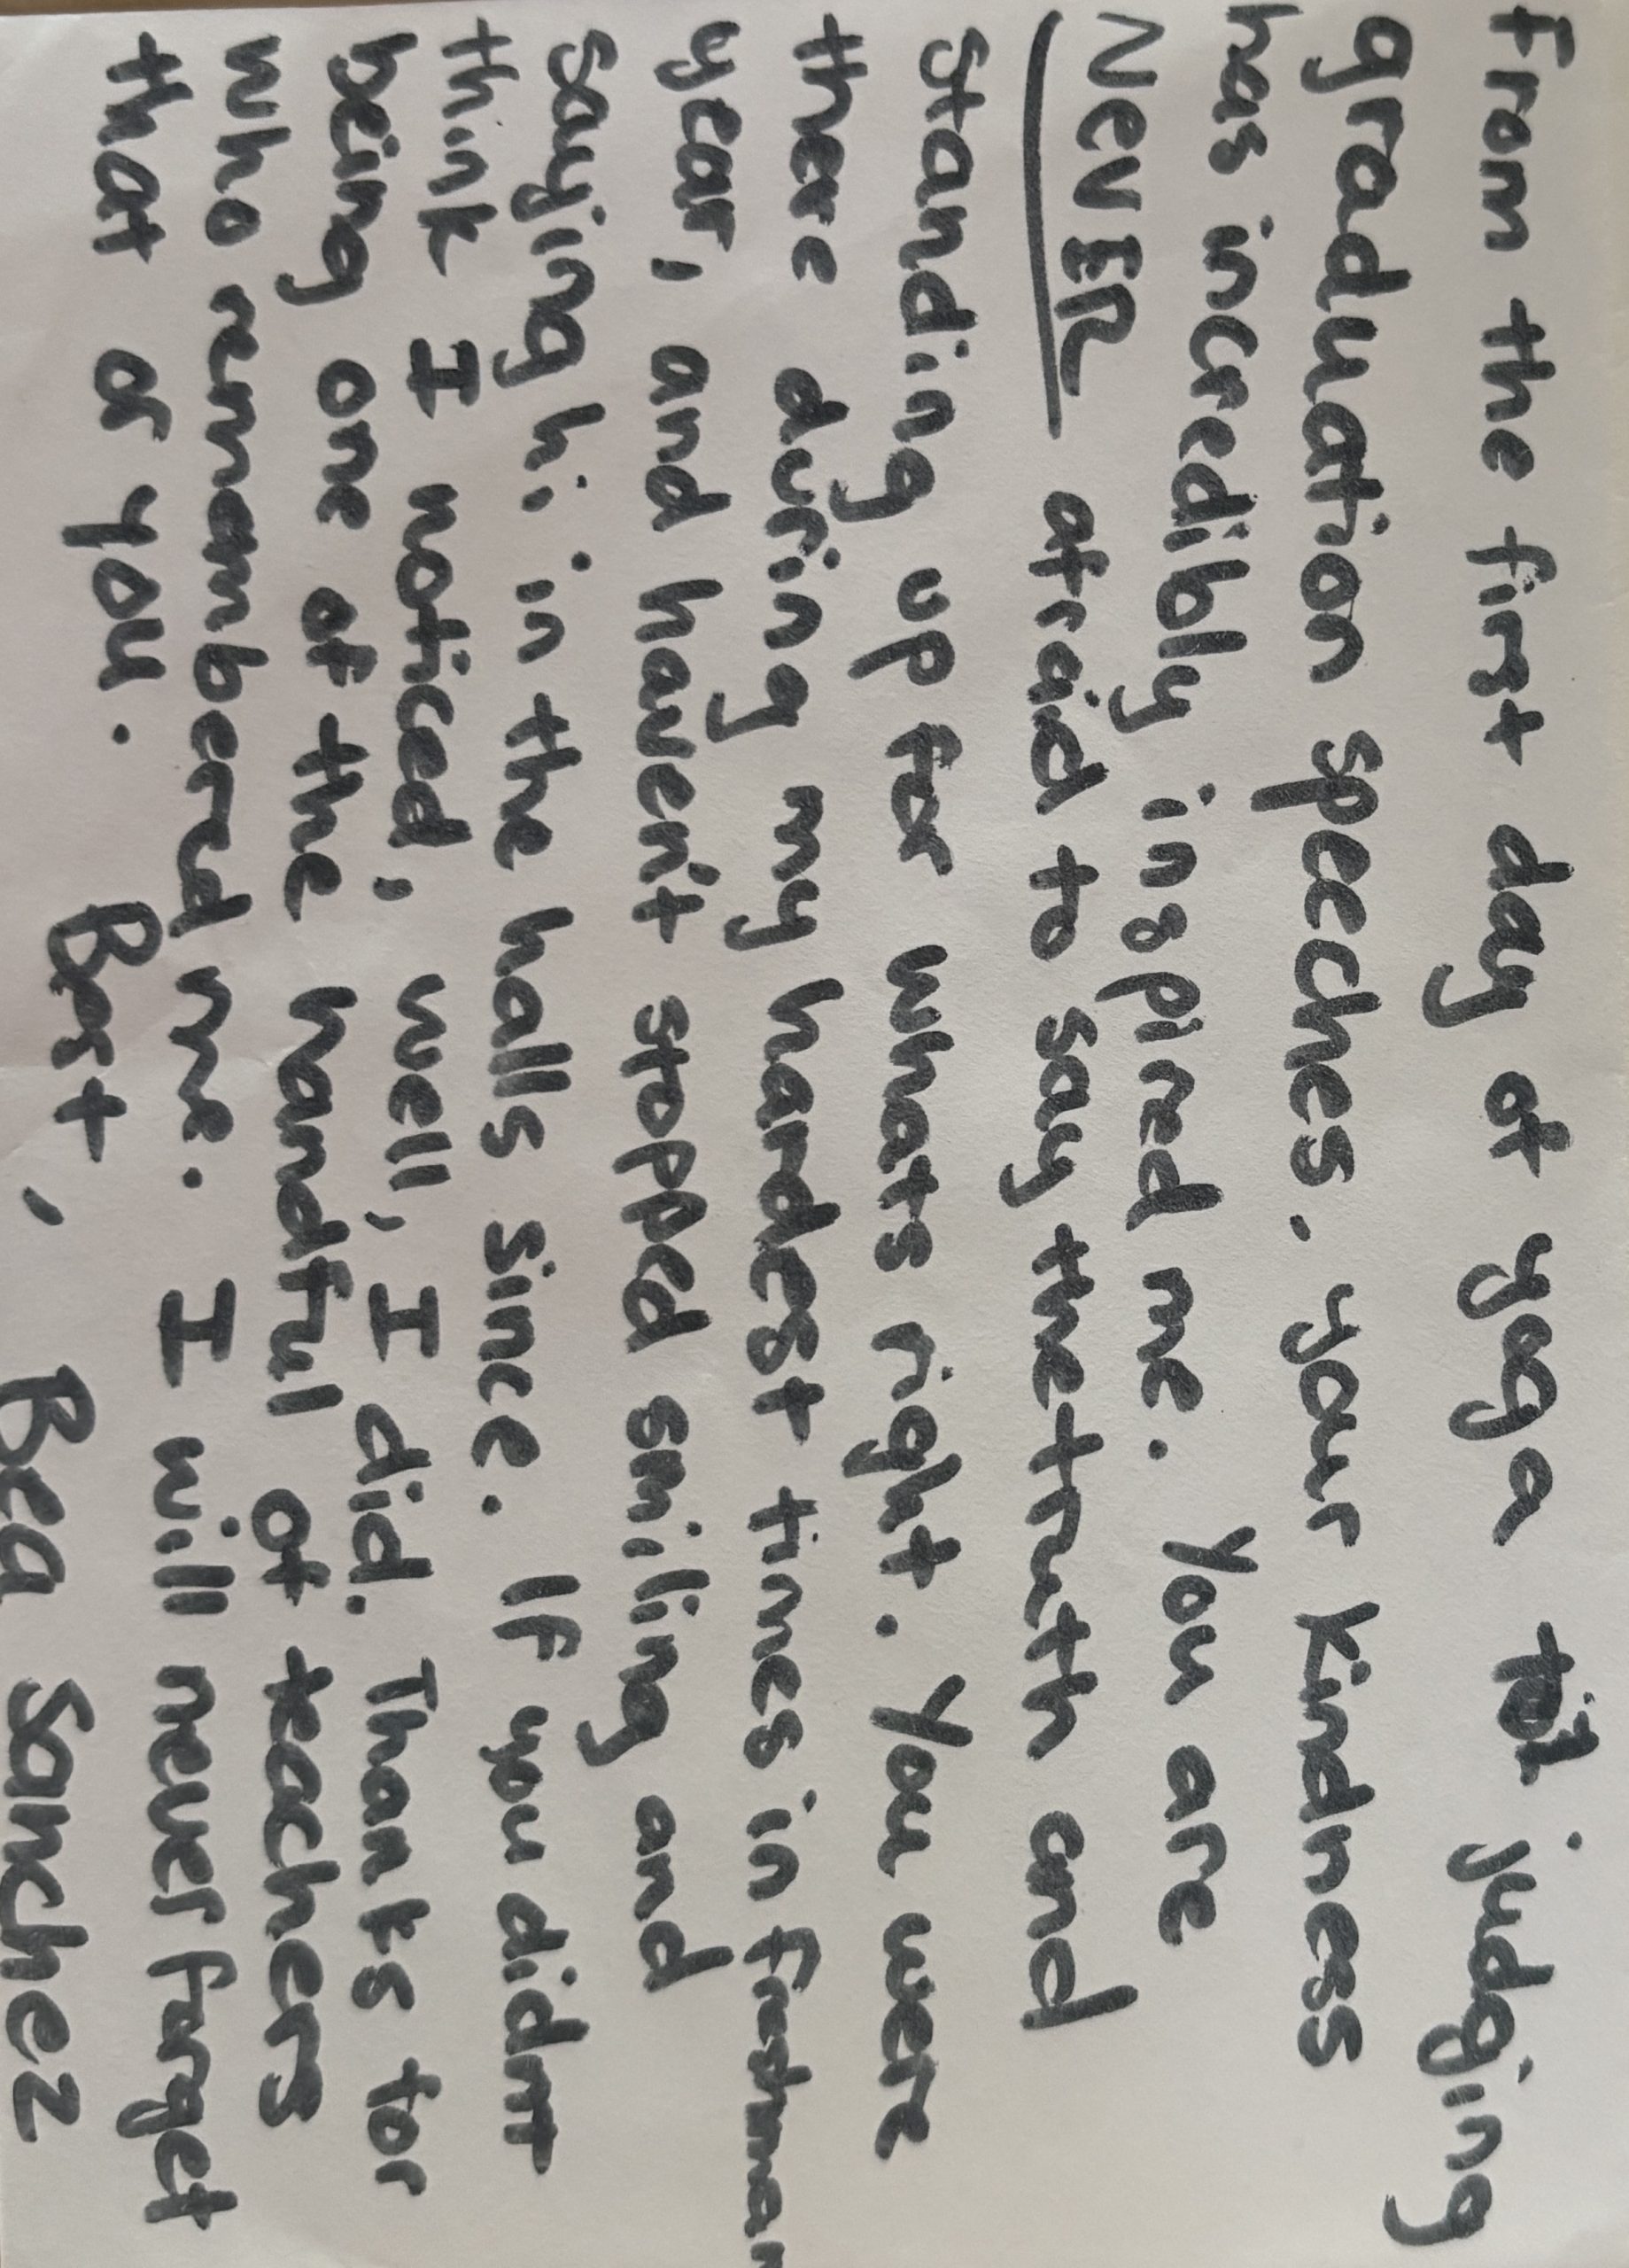 From the first day of yoga til judging
graduation speeches. your kindness
has incredibly inspired me. You are
NEVER afraid to say the truth and
standing up for whats right. You were
there during my hardest times in freshman
year, and havent stopped smiling and
saying hi in the halls since. If you didnt
think I noticed, well, I did. Thanks for
being one of the handful of teachers
who remembered me. I will never forget
that of you.
Best, Bea Sanchez